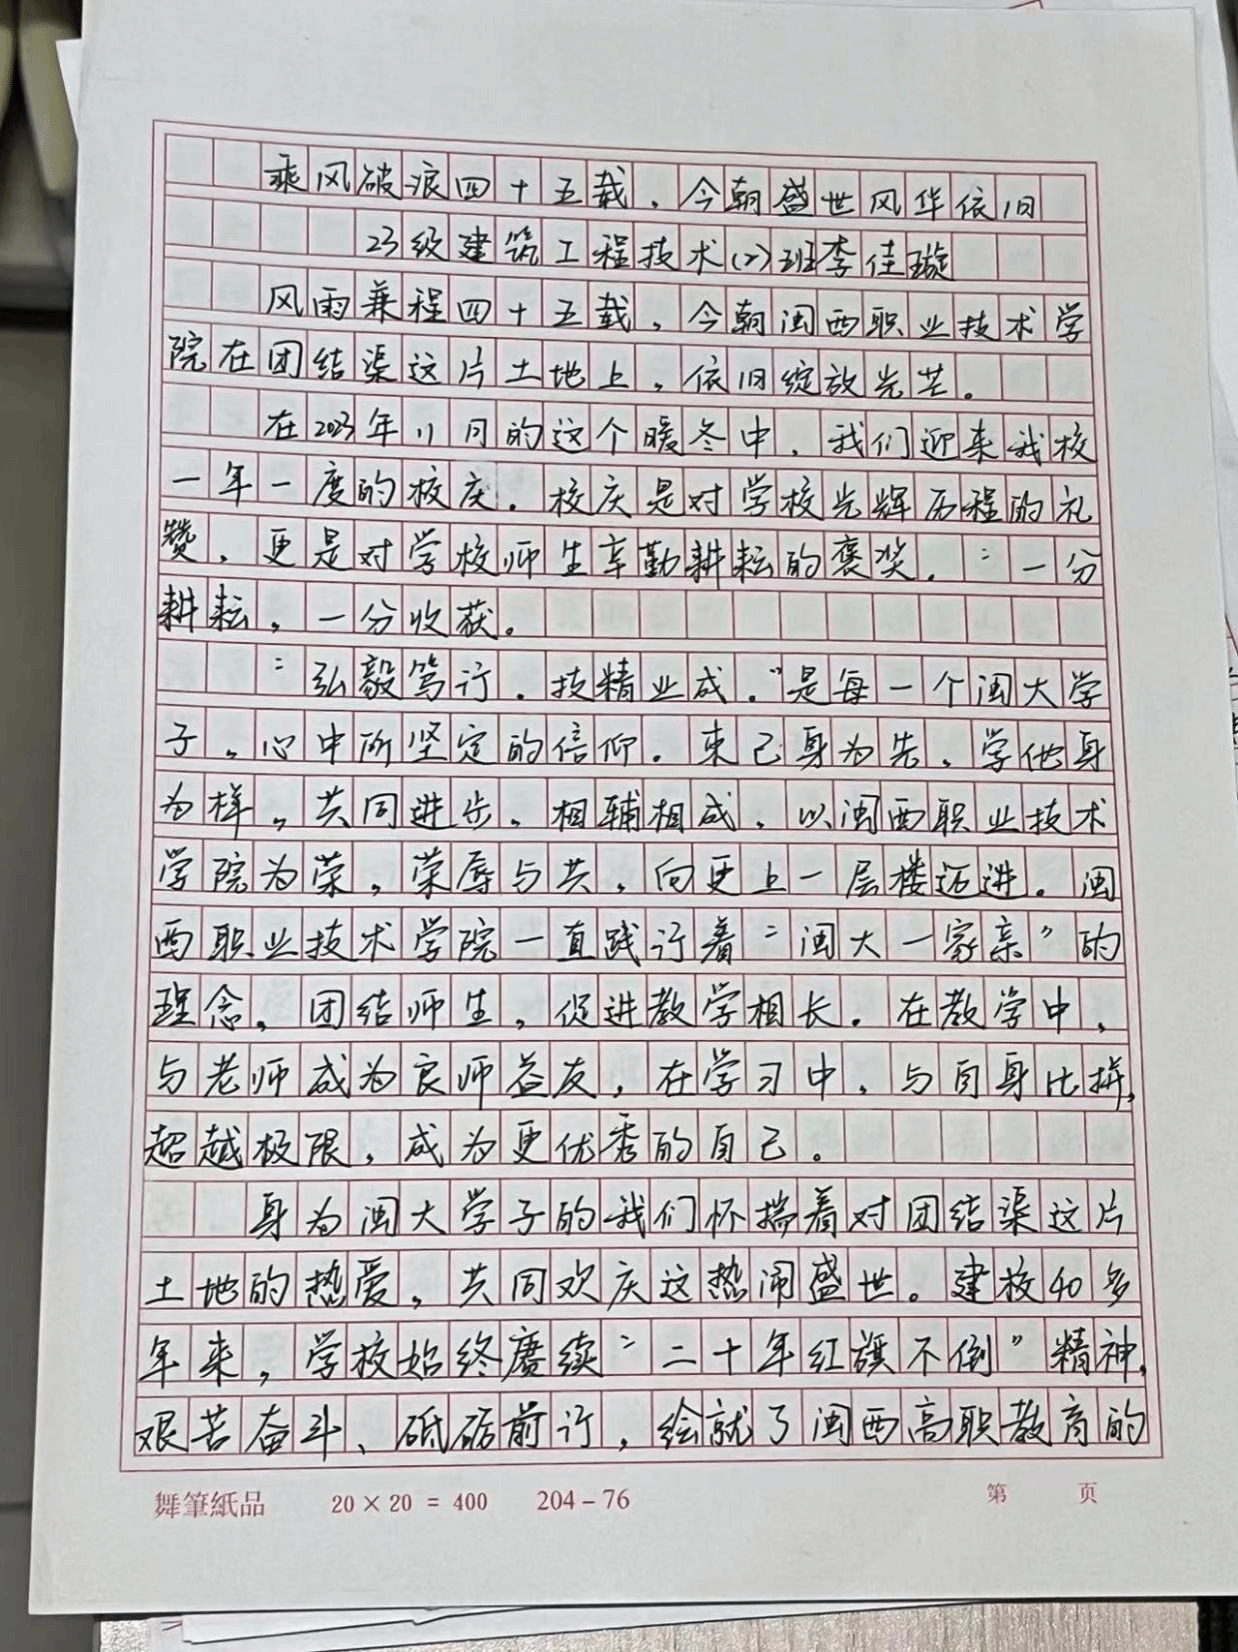 乘风破浪四十五载，今朝盛世风华依旧
23级建筑工程技术(2)班李佳璇
风雨兼程四十五载，今朝闽西职业技术学
院在团结渠这片土地上，依旧绽放光芒。
在2023年11月的这个暖冬中，我们迎来我校
一年一度的校庆。校庆是对学校光辉历程的礼
赞，更是对学校师生辛勤耕耘的褒奖。“一分
耕耘，一分收获。
“弘毅笃行，技精业成。”是每一个闽大学
子，心中所坚定的信仰。束己身为先，学他身
为样，共同进步，相辅相成，以闽西职业技术
学院为荣，荣辱与共，向更上一层楼迈进。闽
西职业技术学院一直践行着“闽大一家亲”的
理念，团结师生，促进教学相长。在教学中，
与老师成为良师益友，在学习中，与自身比拼，
超越极限，成为更优秀的自己。
身为闽大学子的我们怀揣着对团结渠这片
土地的热爱，共同欢庆这热闹盛世。建校40多
年来，学校始终赓续“二十年红旗不倒”精神，
艰苦奋斗、砥砺前行，绘就了闽西高职教育的
舞筆紙品 20×20=400 204-76 第 页